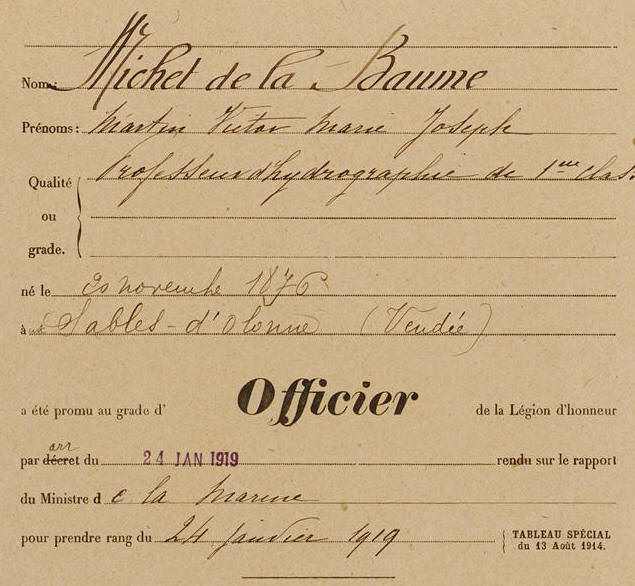 Nom: Michel de la Baume
Prénoms: Martin Victor Marie Joseph
Qualité ou grade. Professeur d'hydrographie de 1ère clas.
né le 20 novembre 1876
à Sables-d'Olonne (Vendée)
a été promu au grade d' Officier de la Légion d'honneur
arr
par décret du 24 JAN 1919 rendu sur le rapport
du Ministre de la Marine
pour prendre rang du 24 janvier 1919 TABLEAU SPÉCIAL
du 13 Août 1914.